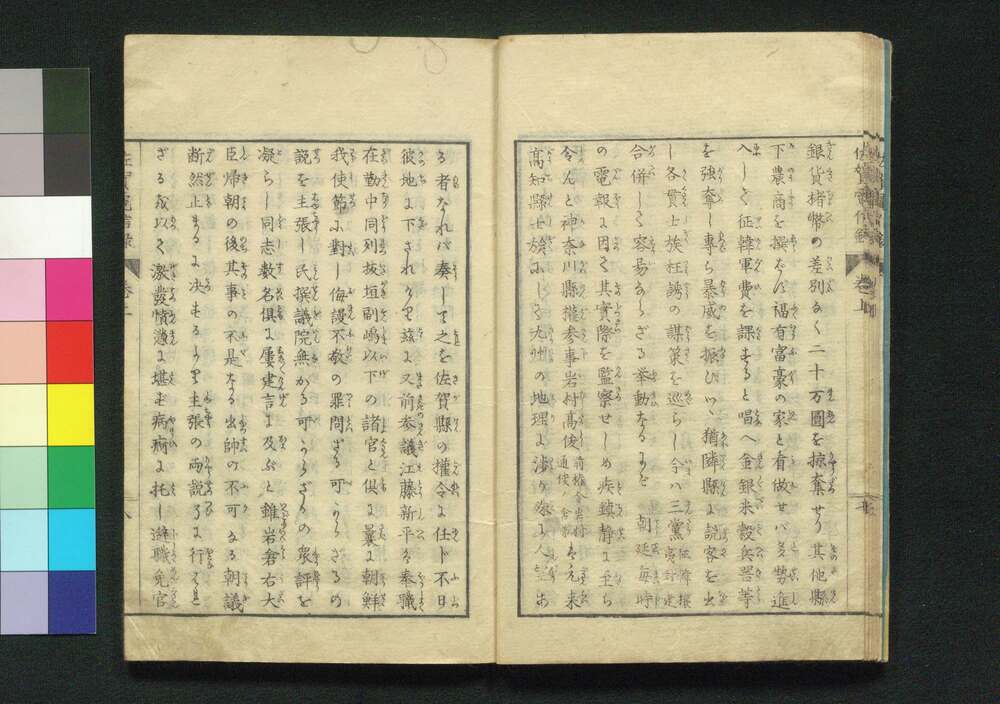 銀貨楮幣の差別なく二十万圓を掠奪せり其他縣
下農商を撰ばず福有富豪の家と看做せバ多勢進
入して征韓軍費を課すると唱へ金銀米穀兵器等
を強奪し専ら暴威を振ひつゝ猶隣縣に説客を出
し各貫士族枉誘の謀策を巡らし今ハ三黨征韓撰封建
合併して容易ならざる挙動なるよを 朝廷毎時
の電報に因て其實際を監察せしめ疾鎮静に至ら
令んと神奈川縣権参事岩村高俊前権令岩村通俊ノ舎弟ハ元来
高知縣士族にして九州の地理に渉り殊に人望あ
る者なれバ奏して之を佐賀縣の権令に任ト不日
彼地に下されけり茲に又前参議江藤新平ハ奉職
在勤中同列板垣副嶋以下の諸官と倶に曩に朝鮮
我使節に對し侮謾不敬の罪問ざる可からざるの
説を主張し民撰議院無かる可からざるの衆評を
凝らし同志数名倶に屡建言に及ぶと雖岩倉右大
臣帰朝の後其事の不是なる出師の不可なる朝議
断然正まるに决するより主張の両説るに行
ざるを以て激發憤懣に堪ず病痾に托し遊職免官